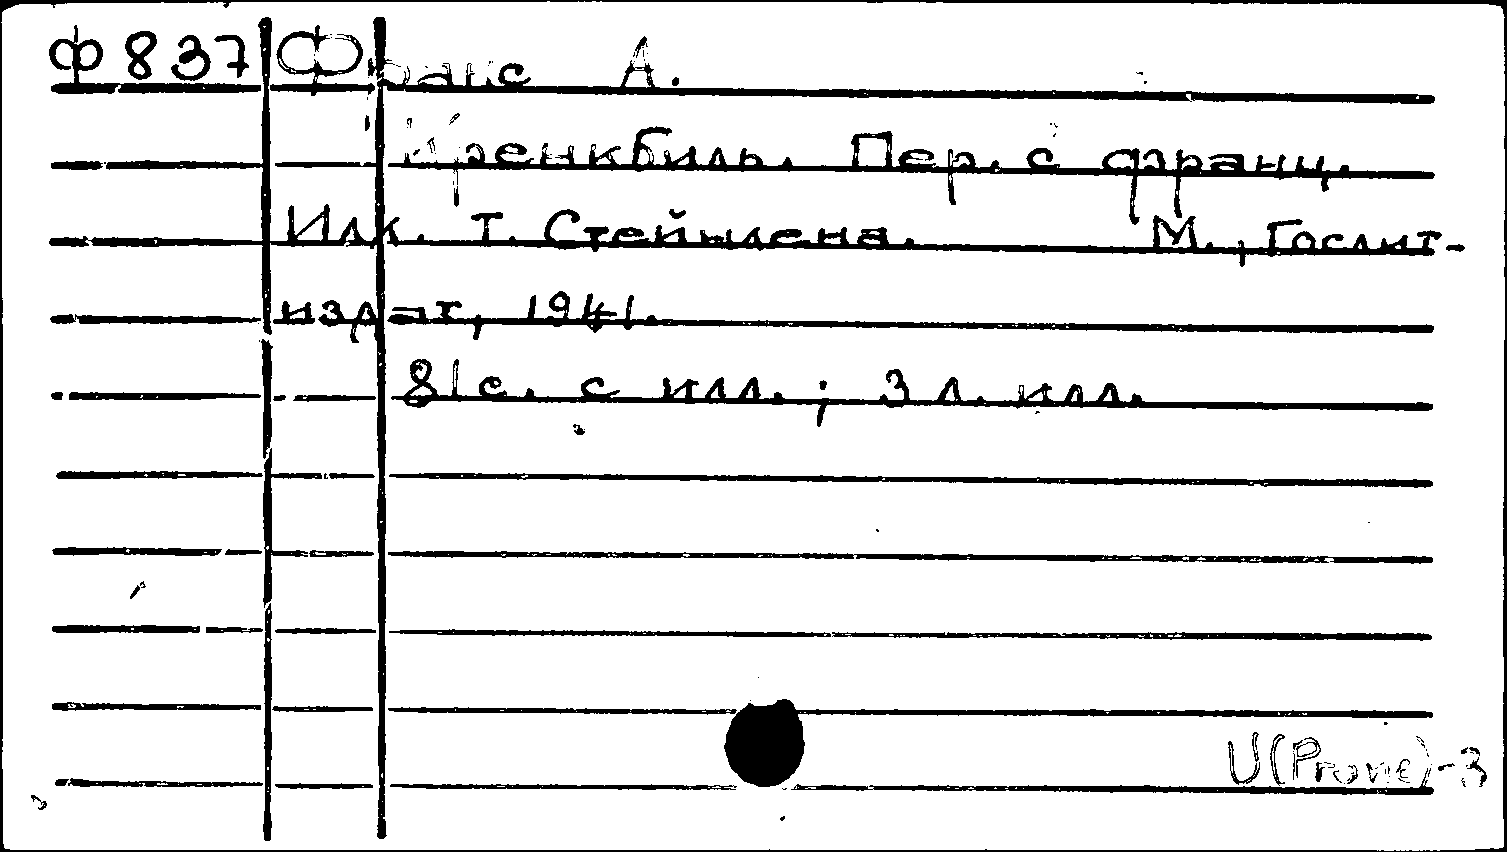 Ф 837 Франс А.
Кренкбиль. Пер. с франц.
Илл. Т. Стейнлена. М., Гослит-
издат, 1941.
81 с. с илл.; 3 л. илл.
U(Prane)-3